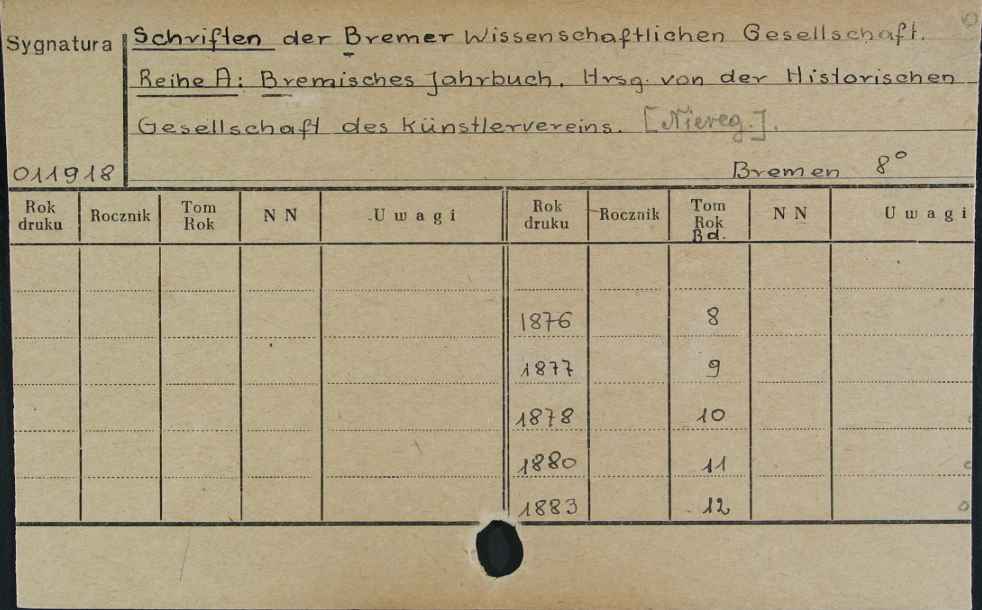 Sygnatura
Schriften der Bremer Wissenschaftlichen Gesellschaft.
Reihe A: Bremisches Jahrbuch. Hrsg. von der Historischen
Gesellschaft des Künstlervereins. [Niereg.].
011918
Bremen 8°
Rok druku Rocznik Tom Rok N N Uwagi Rok druku Rocznik Tom Rok Bd. N N Uwagi
1876 8
1877 9
1878 10
1880 11
1883 12